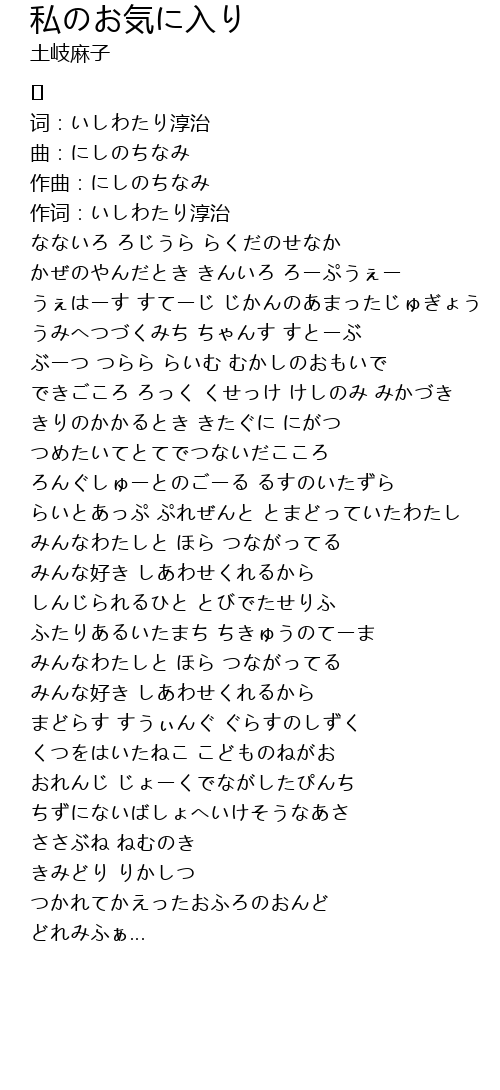 私のお気に入り
土岐麻子
[]
词：いしわたり淳治
曲：にしのちなみ
作曲：にしのちなみ
作词：いしわたり淳治
なないろ ろじうら らくだのせなか
かぜのやんだとき きんいろ ろーぷうぇー
うぇはーす すてーじ じかんのあまったじゅぎょう
うみへつづくみち ちゃんす すとーぶ
ぶーつ つらら らいむ むかしのおもいで
できごころ ろっく くせっけ けしのみ みかづき
きりのかかるとき きたぐに にがつ
つめたいてとてでつないだこころ
ろんぐしゅーとのごーる るすのいたずら
らいとあっぷ ぷれぜんと とまどっていたわたし
みんなわたしと ほら つながってる
みんな好き しあわせくれるから
しんじられるひと とびでたせりふ
ふたりあるいたまち ちきゅうのてーま
みんなわたしと ほら つながってる
みんな好き しあわせくれるから
まどらす すうぃんぐ ぐらすのしずく
くつをはいたねこ こどものねがお
おれんじ じょーくでながしたぴんち
ちずにないばしょへいけそうなあさ
ささぶね ねむのき
きみどり りかしつ
つかれてかえったおふろのおんど
どれみふぁ...